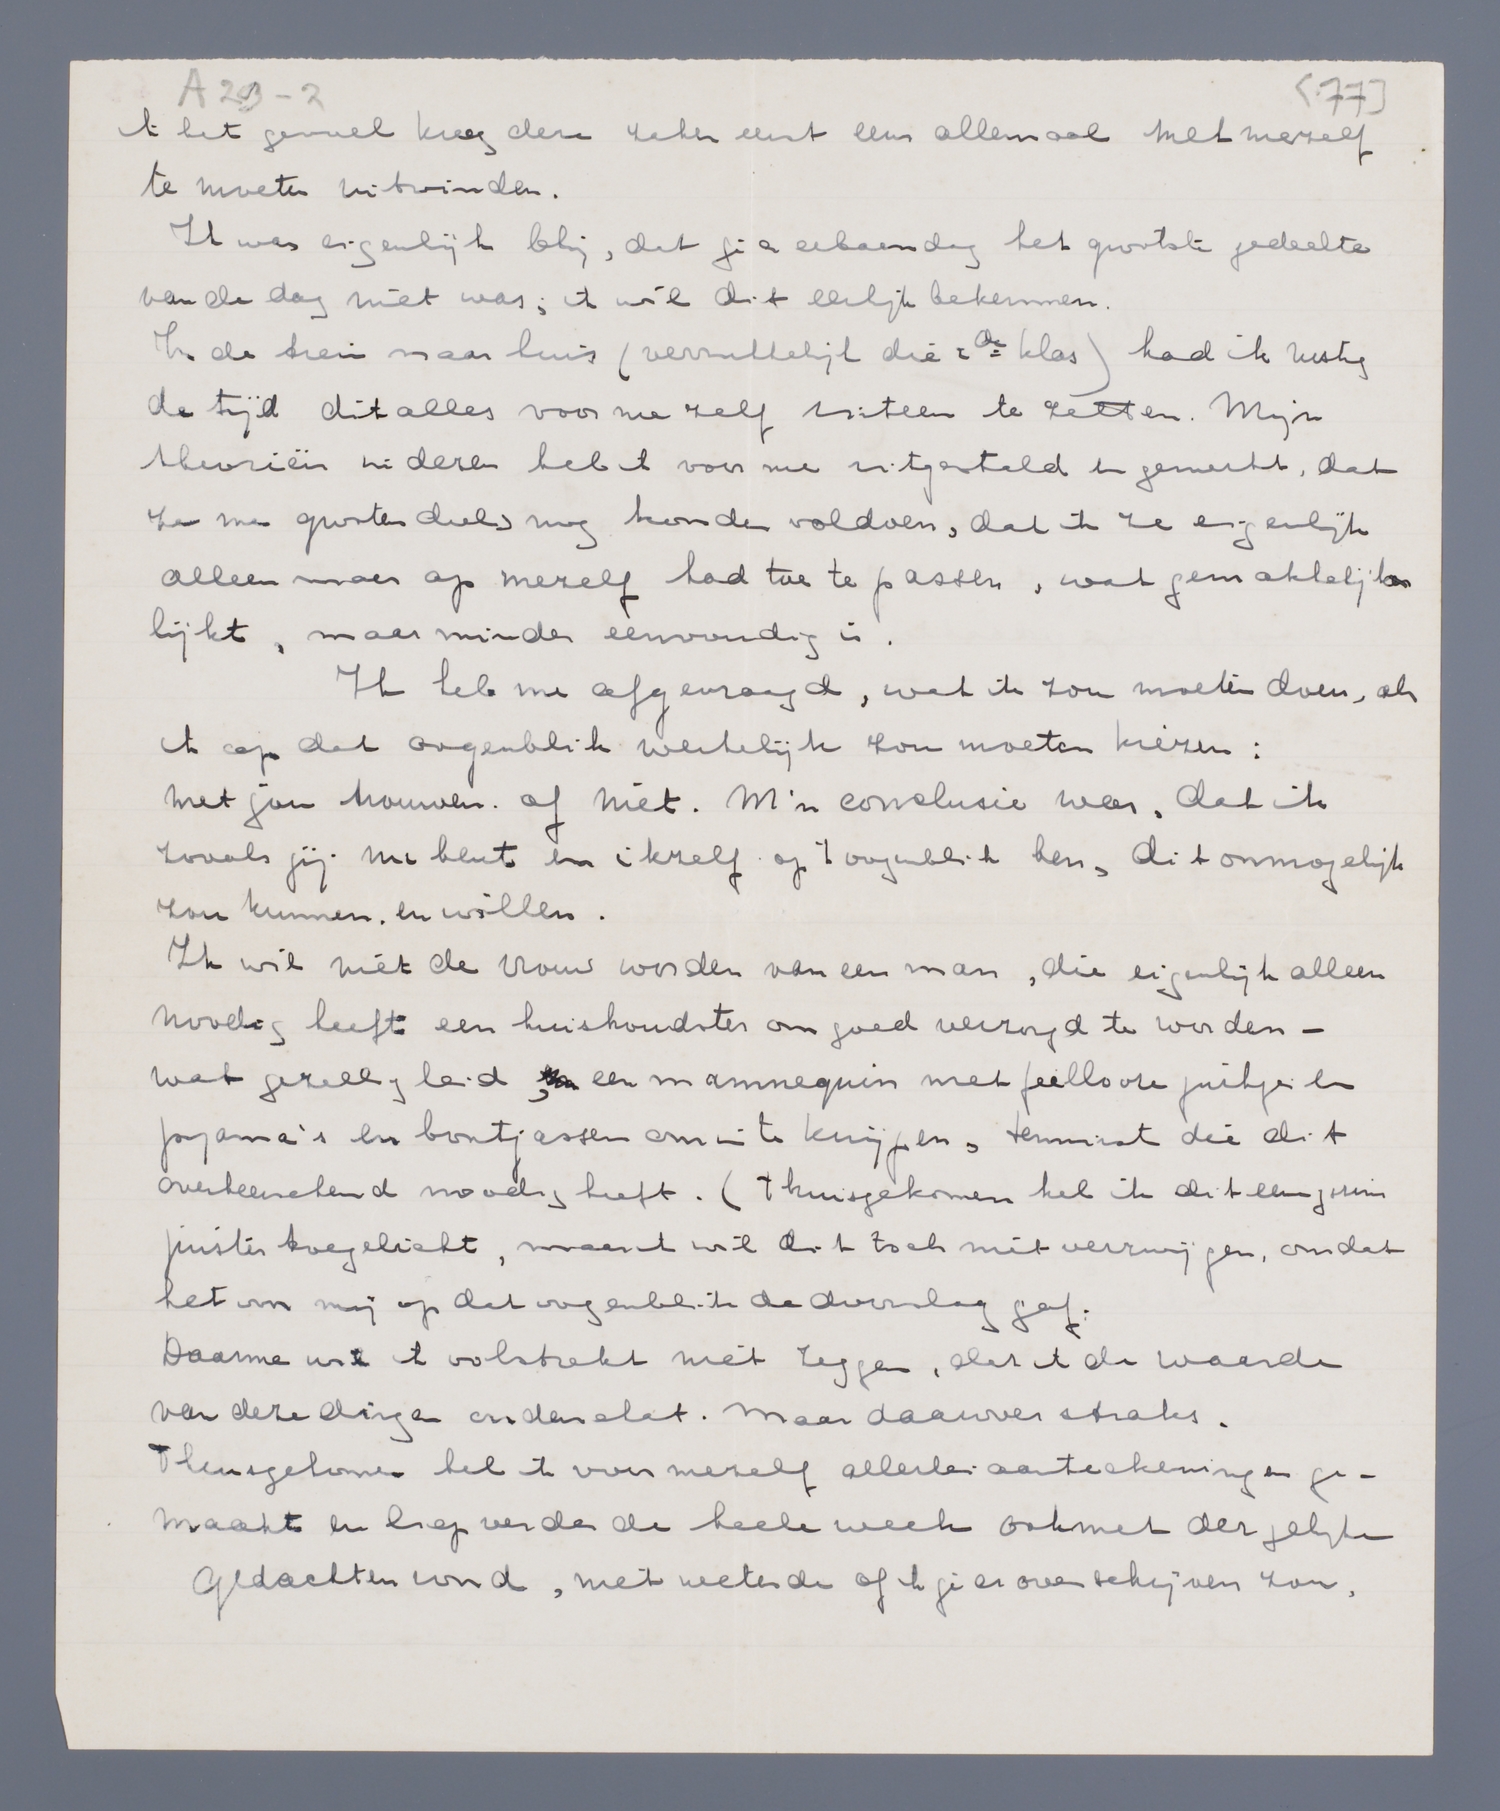 A 29-2
[77]
ik het gevoel kreeg deze zaken eerst eens allemaal met mezelf
te moeten uitvinden.
Ik was eigenlijk blij, dat je a het grootste gedeelte
van de dag niet was; ik wil dit eerlijk bekennen.
In de trein naar huis (verrukkelijk die 2de klas) had ik rustig
de tijd dit alles voor me zelf uiteen te zetten. Mijn
theorieën in dezen heb ik voor me uitgestald en gemerkt, dat
ze me grotendeels nog konden voldoen, dat ik ze eigenlijk
alleen maar op mezelf had toe te passen, wat gemakkelijker
lijkt, maar minder eenvoudig is.
Ik heb me afgevraagd, wat ik zou moeten doen, als
ik op dat oogenblik werkelijk zou moeten kiezen:
met jou trouwen of niet. M'n conclusie was, dat ik
zooals jij me bent en ikzelf op 't oogenblik ben, dit onmogelijk
zou kunnen en willen.
Ik wil niet de vrouw worden van een man, die eigenlijk alleen
noodig heeft een huishoudster om goed verzorgd te worden -
wat gezelligheid, een mannequin met feilloore pakje en
pyama's en bontjassen om in te knijpen, tenminste die dit
overheerschend noodig heeft. (Thuisgekomen heb ik dit eens
juister toegelicht, maar ik wil dit toch niet verzwijgen, omdat
het voor mij op dat oogenblik de doorslag gaf.
Daarme wil ik volstrekt niet zeggen, dat ik de waarde
van deze dingen onderschat. Maar daarover straks.
Thuisgekomen heb ik voor mezelf allerlei aanteekeningen ge-
maakt en liep verder de heele week ook met dergelijke
gedachten rond, niet wetende of ik je er over schrijven zou,